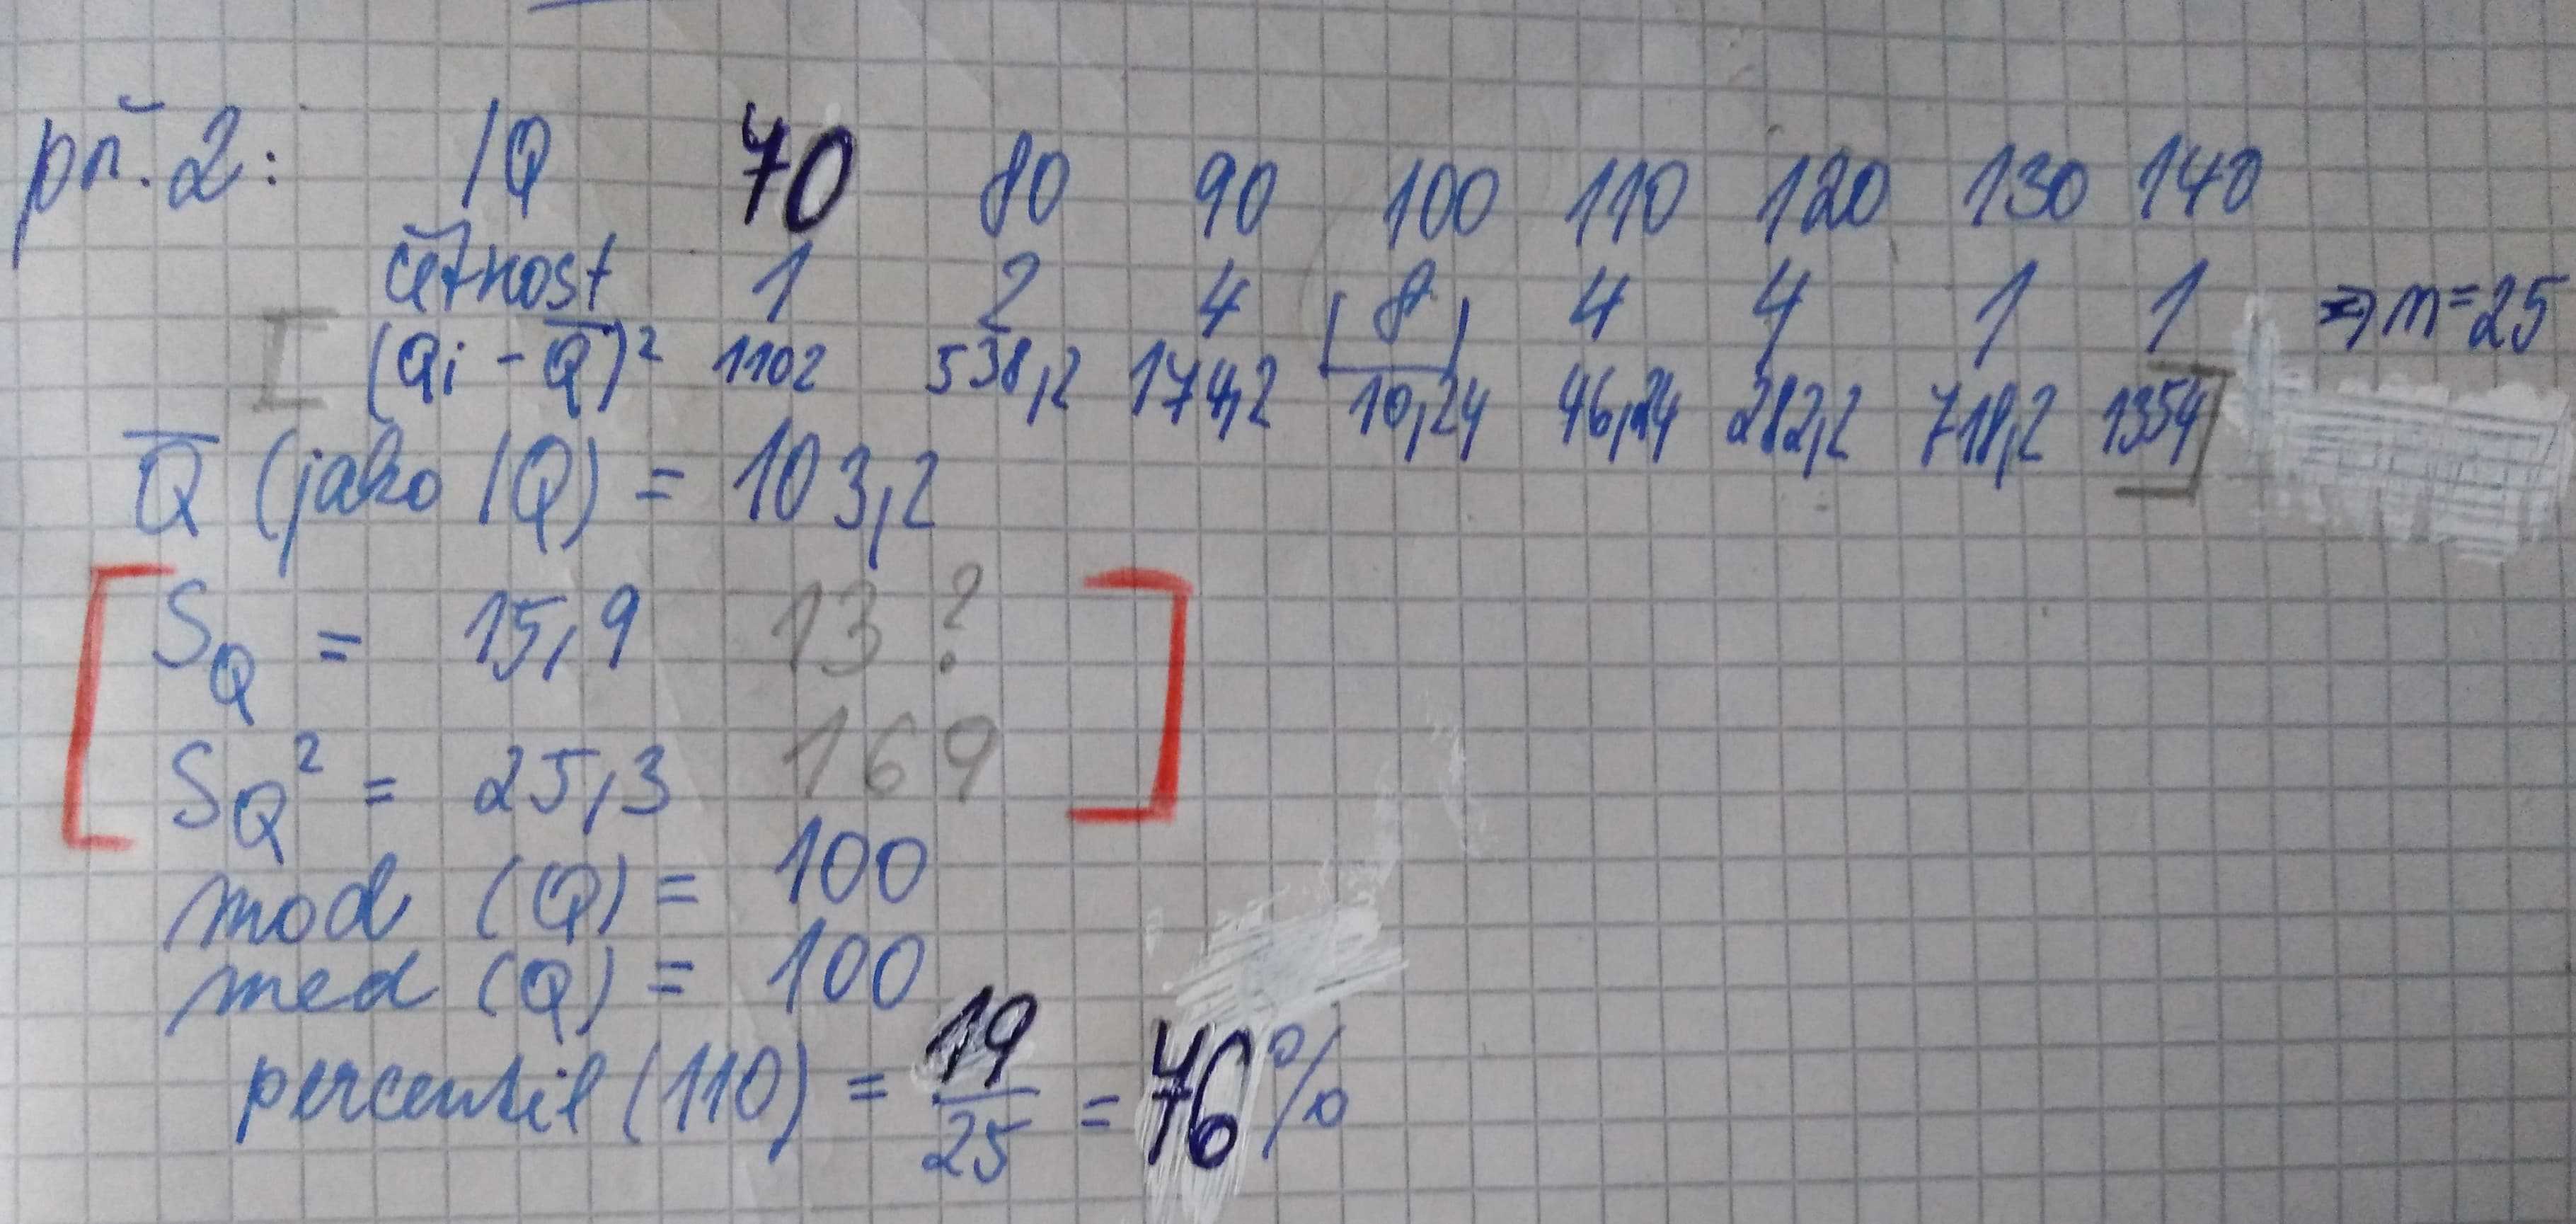 př. 2: IQ 70 80 90 100 110 120 130 140
četnost 1 2 4 8 4 4 1 1 => n=25
[ (Qi - Q̅)² 1102 538,2 174,2 10,24 46,24 282,2 718,2 1354 ]
Q̅ (jako IQ) = 103,2
[ SQ = 15,9 13 ?
SQ² = 25,3 169 ]
mod (Q) = 100
med (Q) = 100
percentil (110) = 19/25 = 76 %